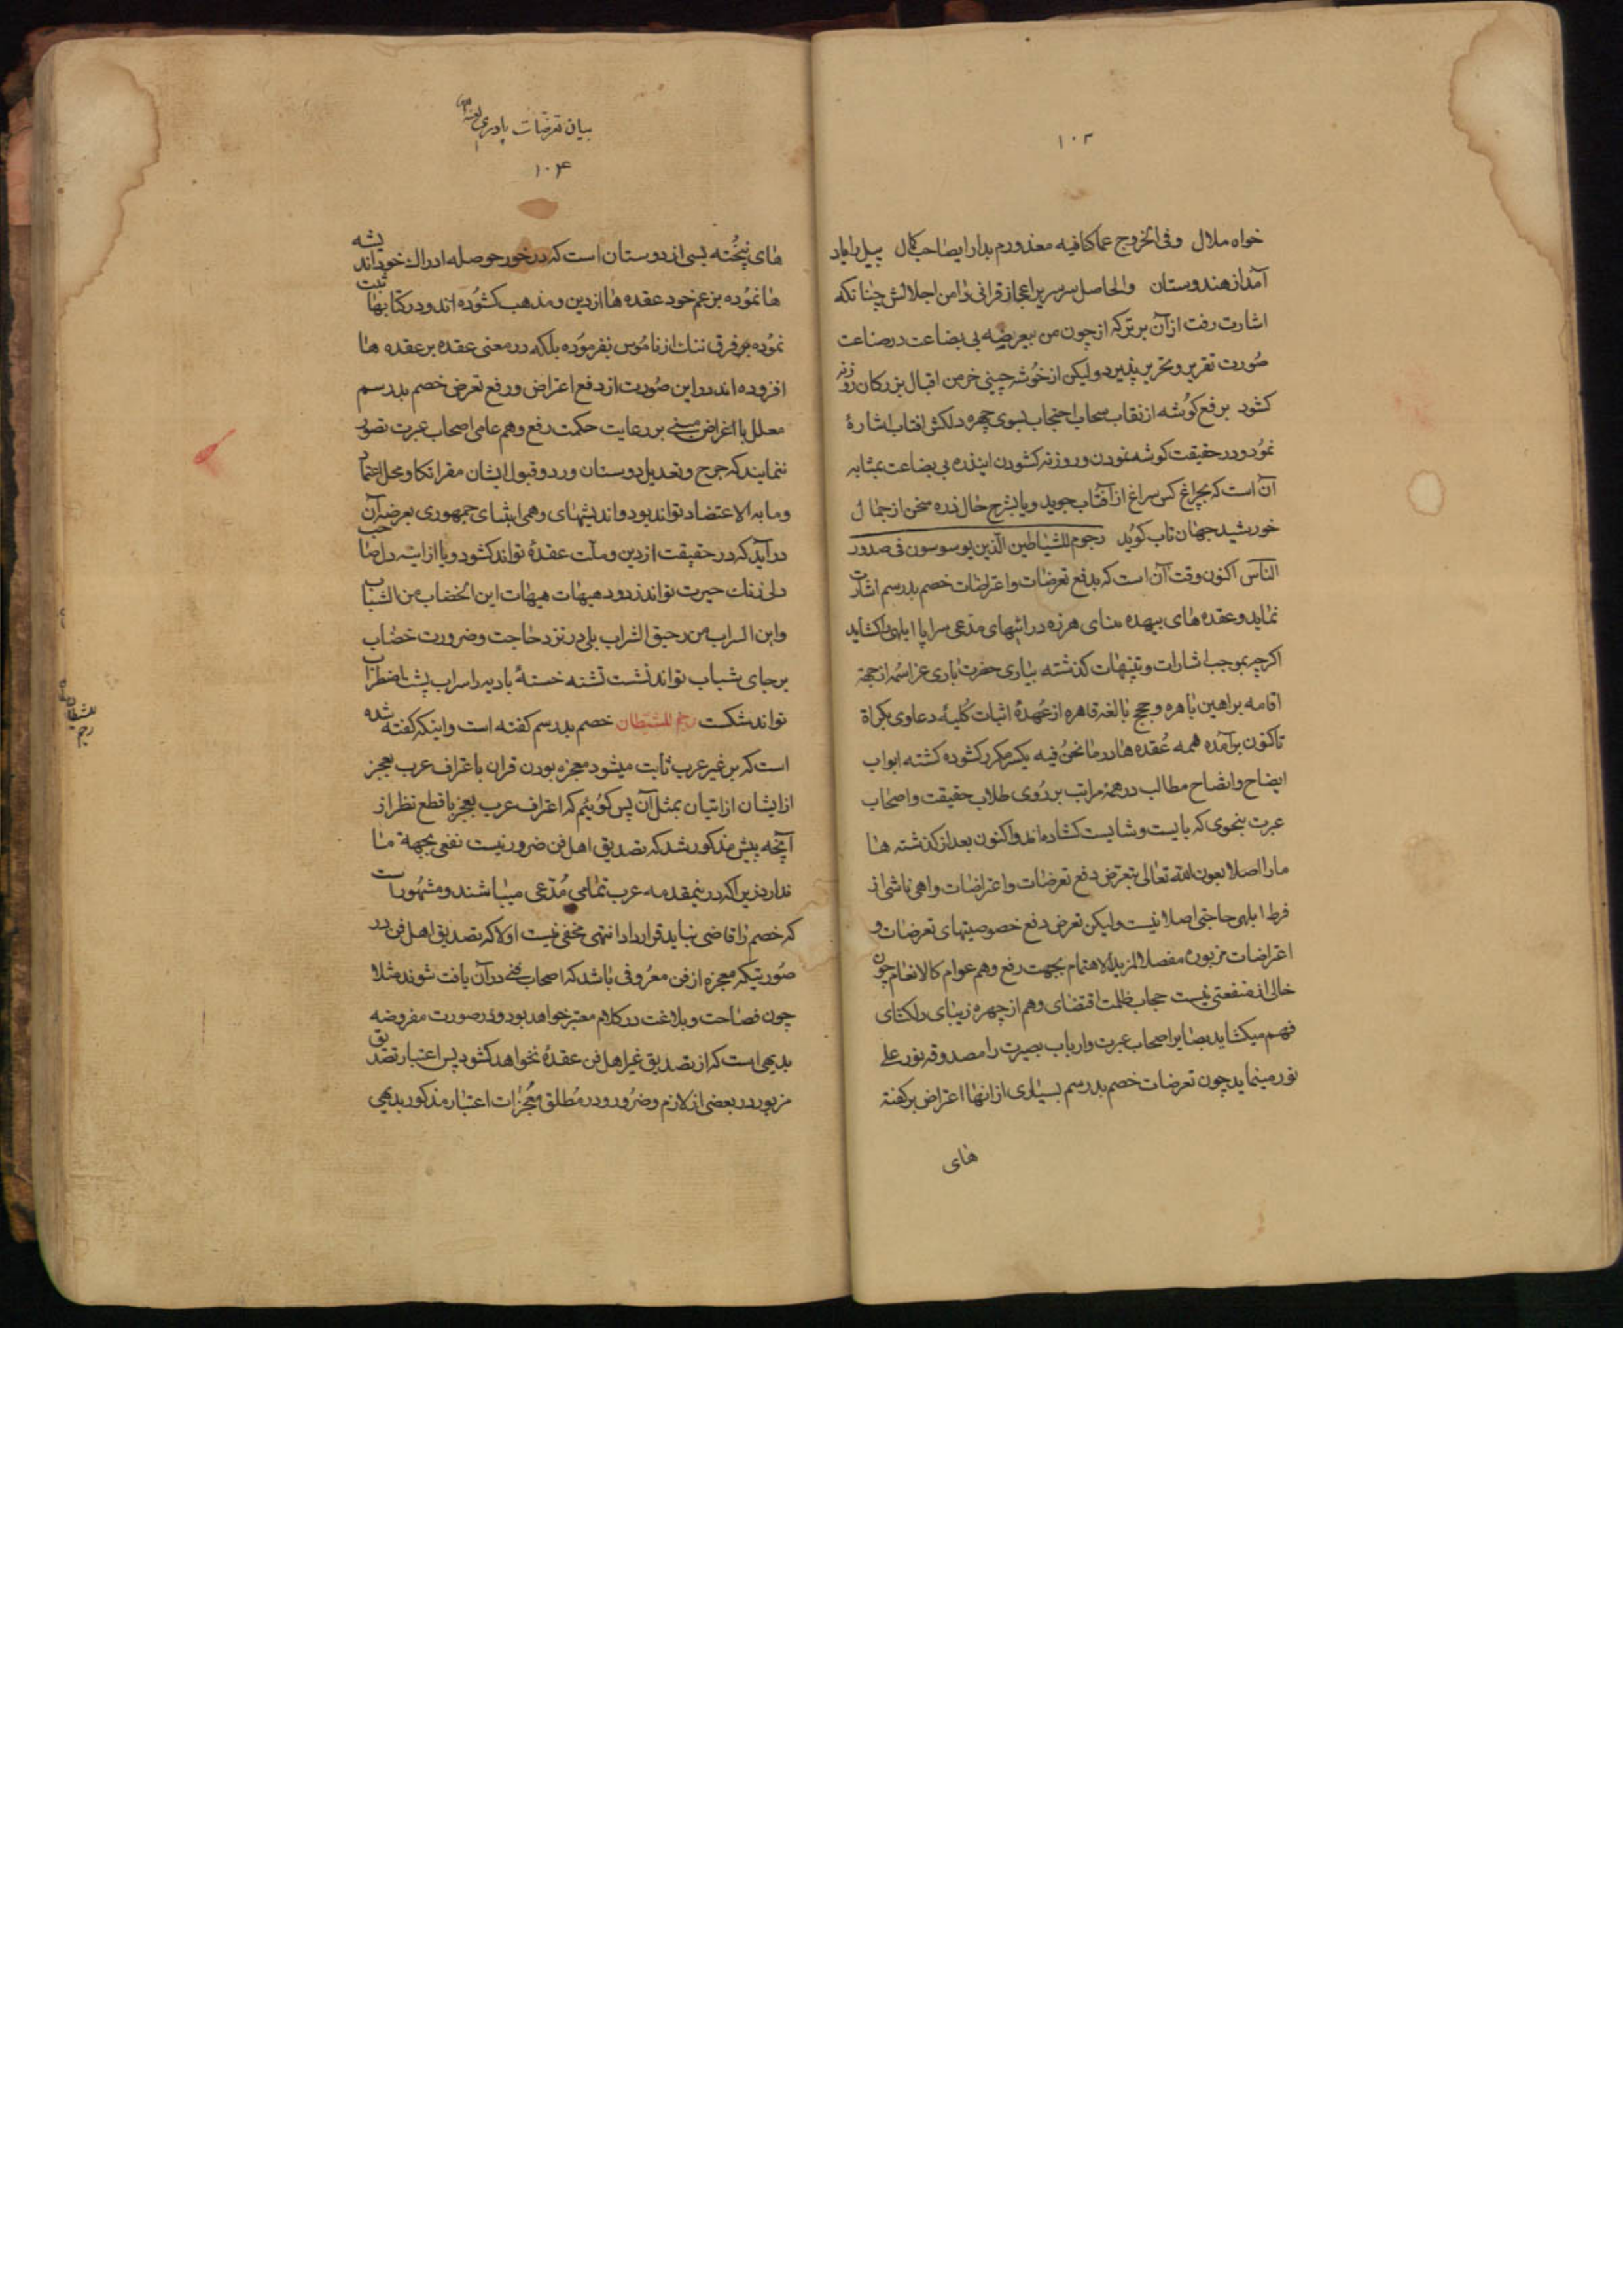 ۱۰۳
خواه ملال وفی الخروج عما کنا فیه معذورم بدار ایصاحب کمال پیل را یاد
آمد از هندوستان والحاصل سر سریر اعجاز قرانی دامن اجلالش چنانکه
اشارت رفت از آن برتر که از چون من بیعرضه بی بضاعت در صناعت
صورت تقریر و تحریر پذیرد ولیکن از خوشه چینی خرمن اقبال بزرکان روزنه
کشود برفع کوشه از نقاب سحاب احتجاب بسوی چهره دلکش افتاب اشارهٔ
نمود و در حقیقت کوشه نمودن و روزنه کشودن اینذره بی بضاعت بمثابه
آن است که بچراغ کس سراغ از آفتاب جوید و یا بشرح حال ذره سخن از جمال
خورشید جهان تاب کوید رجوم للشیاطین الذین یوسوسون فی صدور
الناس اکنون وقت آن است که بدفع تعرضات و اعتراضات خصم بدرسم اشارت
نماید و عقده های بیهده منای هرزه درائیهای مدعی سراپا ابلهی را کشاید
اکرچه بموجب اشارات و تنبیهات کذشته بیاری حضرت باری عز اسمه از جهة
اقامه براهین باهره و حجج بالغه قاهره از عهدهٔ اثبات کلیهٔ دعاوی بکراة
تاکنون برآمده همه عقده ها در ما نحن فیه یکسر مکرر کشوده کشته ابواب
ایضاح و اتضاح مطالب در همهٔ مراتب بر روی طلاب حقیقت و اصحاب
عبرت بنحوی که بایست و شایست کشاده اند و اکنون بعد از کذشته ها
ما را اصلا بعون الله تعالی بتعرض دفع تعرضات و اعتراضات واهی ناشی از
فرط ابلهی حاجتی اصلا نیست ولیکن تعرض دفع خصوصیتهای تعرضات و
اعتراضات مزبوره مفصلا لمزید الاهتمام بجهت رفع وهم عوام کالانعام چون
خالی از منفعتی نیست حجاب ظلمت اقتضای وهم از چهره زیبای دلکشای
فهم میکشاید بصایر اصحاب عبرت و ارباب بصیرت را مصدوقه نور علی
نور مینماید چون تعرضات خصم بدرسم بسیاری از انها اعتراض بر کفته
های
بیان تعرضات پادری
۱۰۴
های نپخته بسی از دوستان است که در خور حوصله ادراک خود اندیشه
ها نموده بزعم خود عقده ها از دین و مذهب کشوده اند و در کتابها ثبت
نموده بر فرق ننک از ناموس نفرموده بلکه در معنی عقده بر عقده ها
افزوده اند در این صورت از دفع اعتراض و رفع تعرض خصم بدرسم
معلل با اغراض مبنی بر رعایت حکمت رفع وهم عامی اصحاب عبرت تصور
ننمایند که جرح و تعدیل دوستان و رد و قبول ایشان مقر اتکا و محل اعتماد
و ما به الاعتضاد تواند بود و اندیشهای وهمی ایشان جمهوری بعرضه آن
در آید که در حقیقت از دین و ملت عقدهٔ تواند کشود و یا از اینه دل صاحب
دلی زنک حیرت تواند زدود هیهات هیهات این الخضاب من الشباب
و این السراب من رحیق الشراب بلی در نزد حاجت و ضرورت خضاب
بر جای شباب تواند نشست تشنه خستهٔ بادیه را سراب پشت اضطراب
تواند شکست رجم للشیطان خصم بدرسم کفته است و اینکه کفته شده
است که بر غیر عرب ثابت میشود معجزه بودن قران باعتراف عرب بعجز
از ایشان از اتیان بمثل آن پس کوئیم که اعتراف عرب بعجز با قطع نظر از
آنچه پیش مذکور شد که تصدیق اهل فن ضرور نیست نفعی بجهة ما
ندارد زیرا که در ینمقدمه عرب تمامی مدعی میباشند و مشهور است
که خصم را قاضی نباید قرار داد انتهی مخفی نیست اولا که تصدیق اهل فن در
صورتیکه معجزه از فن معروفی باشد که اصحاب فنی در آن یافت شوند مثلا
چون فصاحت و بلاغت در کلام معتبر خواهد بود و در صورت مفروضه
بدیهی است که از تصدیق غیر اهل فن عقدهٔ نخواهد کشود پس اعتبار تصدیق
مزبور در بعضی از لازم و ضرور و در مطلق معجزات اعتبار مذکور بدیهی
رجم
للشیطان